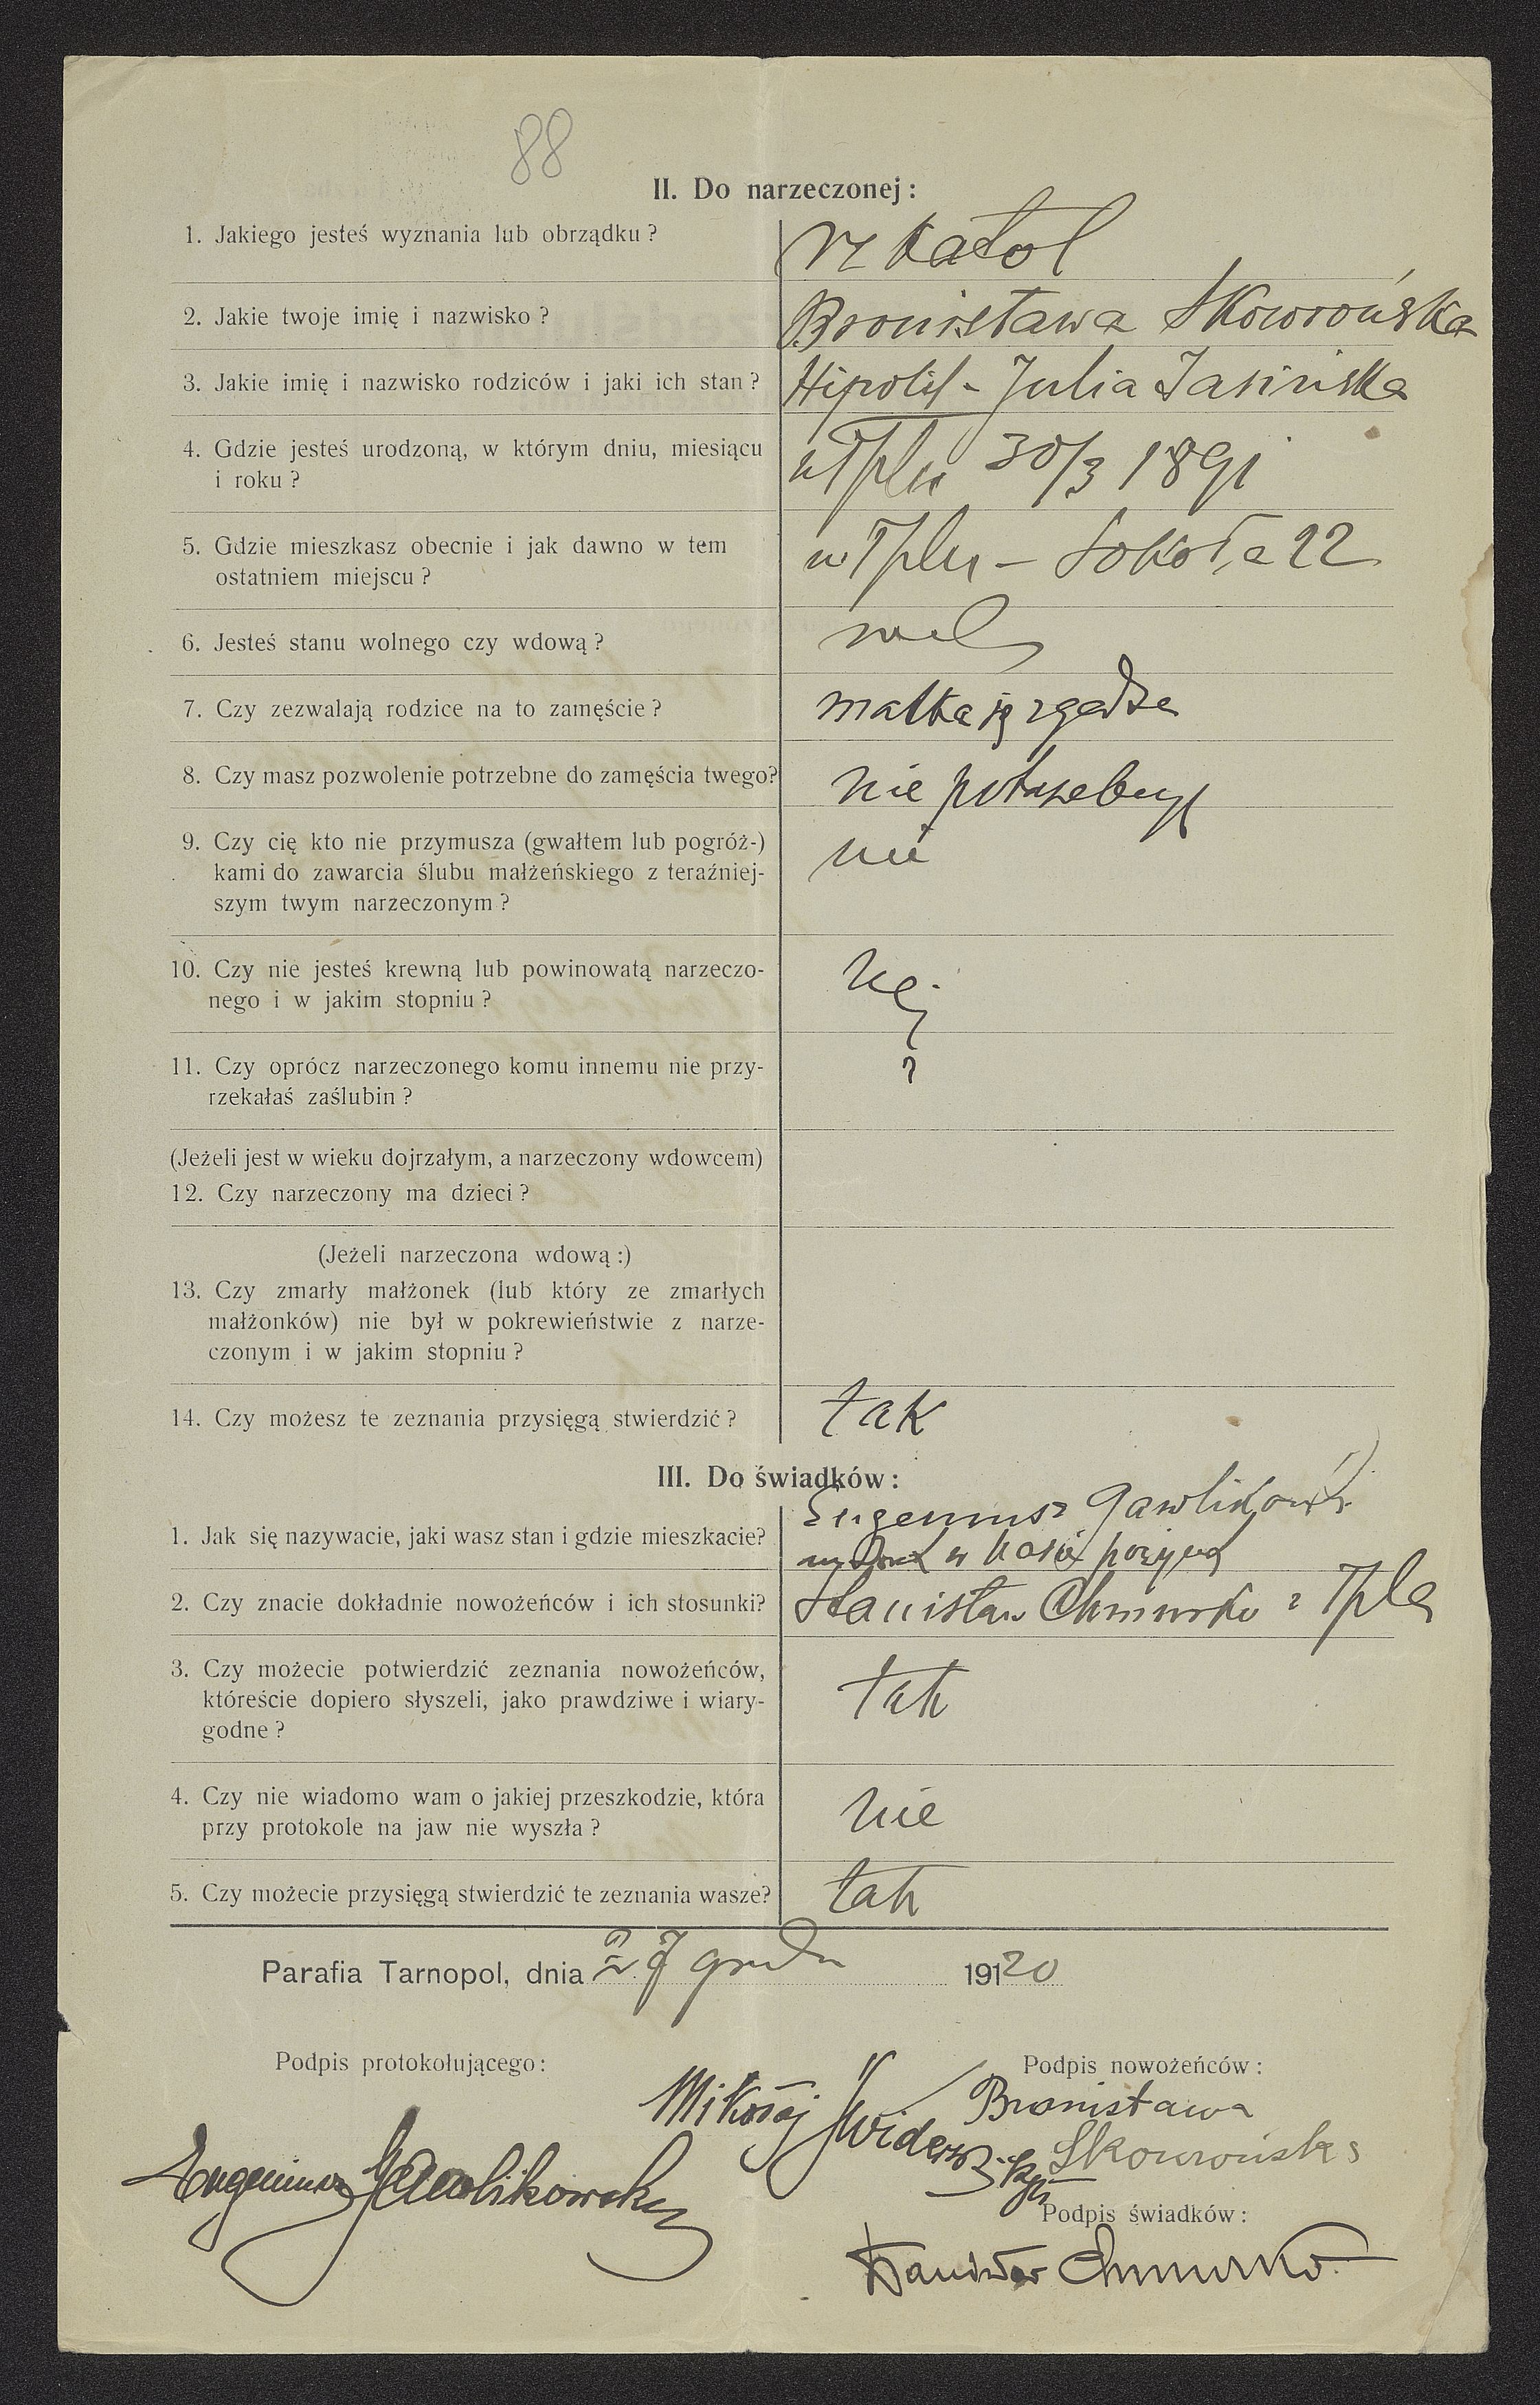 88
II. Do narzeczonej:
1. Jakiego jesteś wyznania lub obrządku?
rz katol
2. Jakie twoje imię i nazwisko?
Bronisława Skowrońska
3. Jakie imię i nazwisko rodziców i jaki ich stan?
Hipolit - Julia Jasińska
4. Gdzie jesteś urodzoną, w którym dniu, miesiącu
i roku?
w Tplu 30/3 1891
5. Gdzie mieszkasz obecnie i jak dawno w tem
ostatniem miejscu?
w Tplu - Sokoła 22
6. Jesteś stanu wolnego czy wdową?
wol
7. Czy zezwalają rodzice na to zamęście?
matka się zgadza
8. Czy masz pozwolenie potrzebne do zamęścia twego?
nie potrzebuję
9. Czy cię kto nie przymusza (gwałtem lub pogróż-)
kami do zawarcia ślubu małżeńskiego z teraźniej-
szym twym narzeczonym?
nie
10. Czy nie jesteś krewną lub powinowatą narzeczo-
nego i w jakim stopniu?
11. Czy oprócz narzeczonego komu innemu nie przy-
rzekałaś zaślubin?
(Jeżeli jest w wieku dojrzałym, a narzeczony wdowcem)
12. Czy narzeczony ma dzieci?
(Jeżeli narzeczona wdową:)
13. Czy zmarły małżonek (lub który ze zmarłych
małżonków) nie był w pokrewieństwie z narze-
czonym i w jakim stopniu?
14. Czy możesz te zeznania przysięgą stwierdzić?
tak
III. Do świadków:
1. Jak się nazywacie, jaki wasz stan i gdzie mieszkacie?
Eugeniusz Gawlikowski
w kasie
2. Czy znacie dokładnie nowożeńców i ich stosunki?
Stanisław Chmurko z Tpla
3. Czy możecie potwierdzić zeznania nowożeńców,
któreście dopiero słyszeli, jako prawdziwe i wiary-
godne?
tak
4. Czy nie wiadomo wam o jakiej przeszkodzie, która
przy protokole na jaw nie wyszła?
nie
5. Czy możecie przysięgą stwierdzić te zeznania wasze?
tak
Parafia Tarnopol, dnia 27 grud 19120
Podpis protokołującego:
Podpis nowożeńców:
Mikołaj Świderski
Bronisława
Skowrońska
Eugeniusz Gawlikowski
Podpis świadków:
Stanisław Chmurko